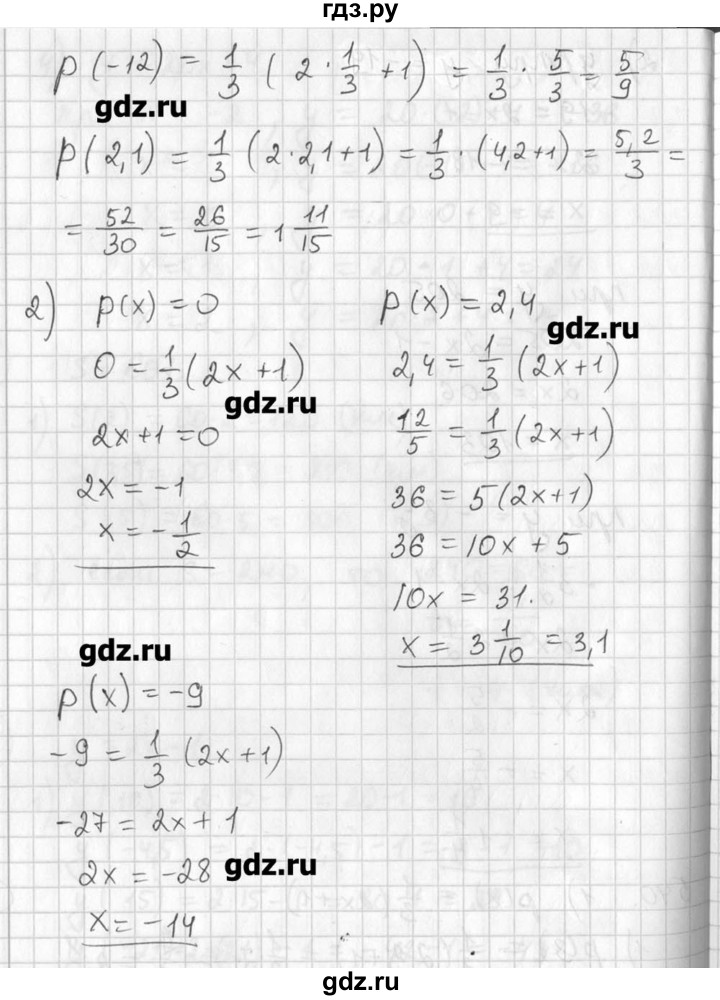 гдз.ру
p(-12) = 1/3 (2 · 1/3 + 1) = 1/3 · 5/3 = 5/9
gdz.ru
p(2,1) = 1/3 (2·2,1+1) = 1/3 · (4,2+1) = 5,2/3 =
= 52/30 = 26/15 = 1 11/15
2) p(x) = 0
0 = 1/3 (2x + 1)
gdz.ru
2x+1 = 0
2x = -1
x = -1/2
p(x) = 2,4
gdz.ru
2,4 = 1/3 (2x+1)
12/5 = 1/3 (2x+1)
36 = 5(2x+1)
36 = 10x + 5
10x = 31.
x = 3 1/10 = 3,1
gdz.ru
p(x) = -9
-9 = 1/3 (2x+1)
-27 = 2x + 1
2x = -28
gdz.ru
x = -14
gdz.ru